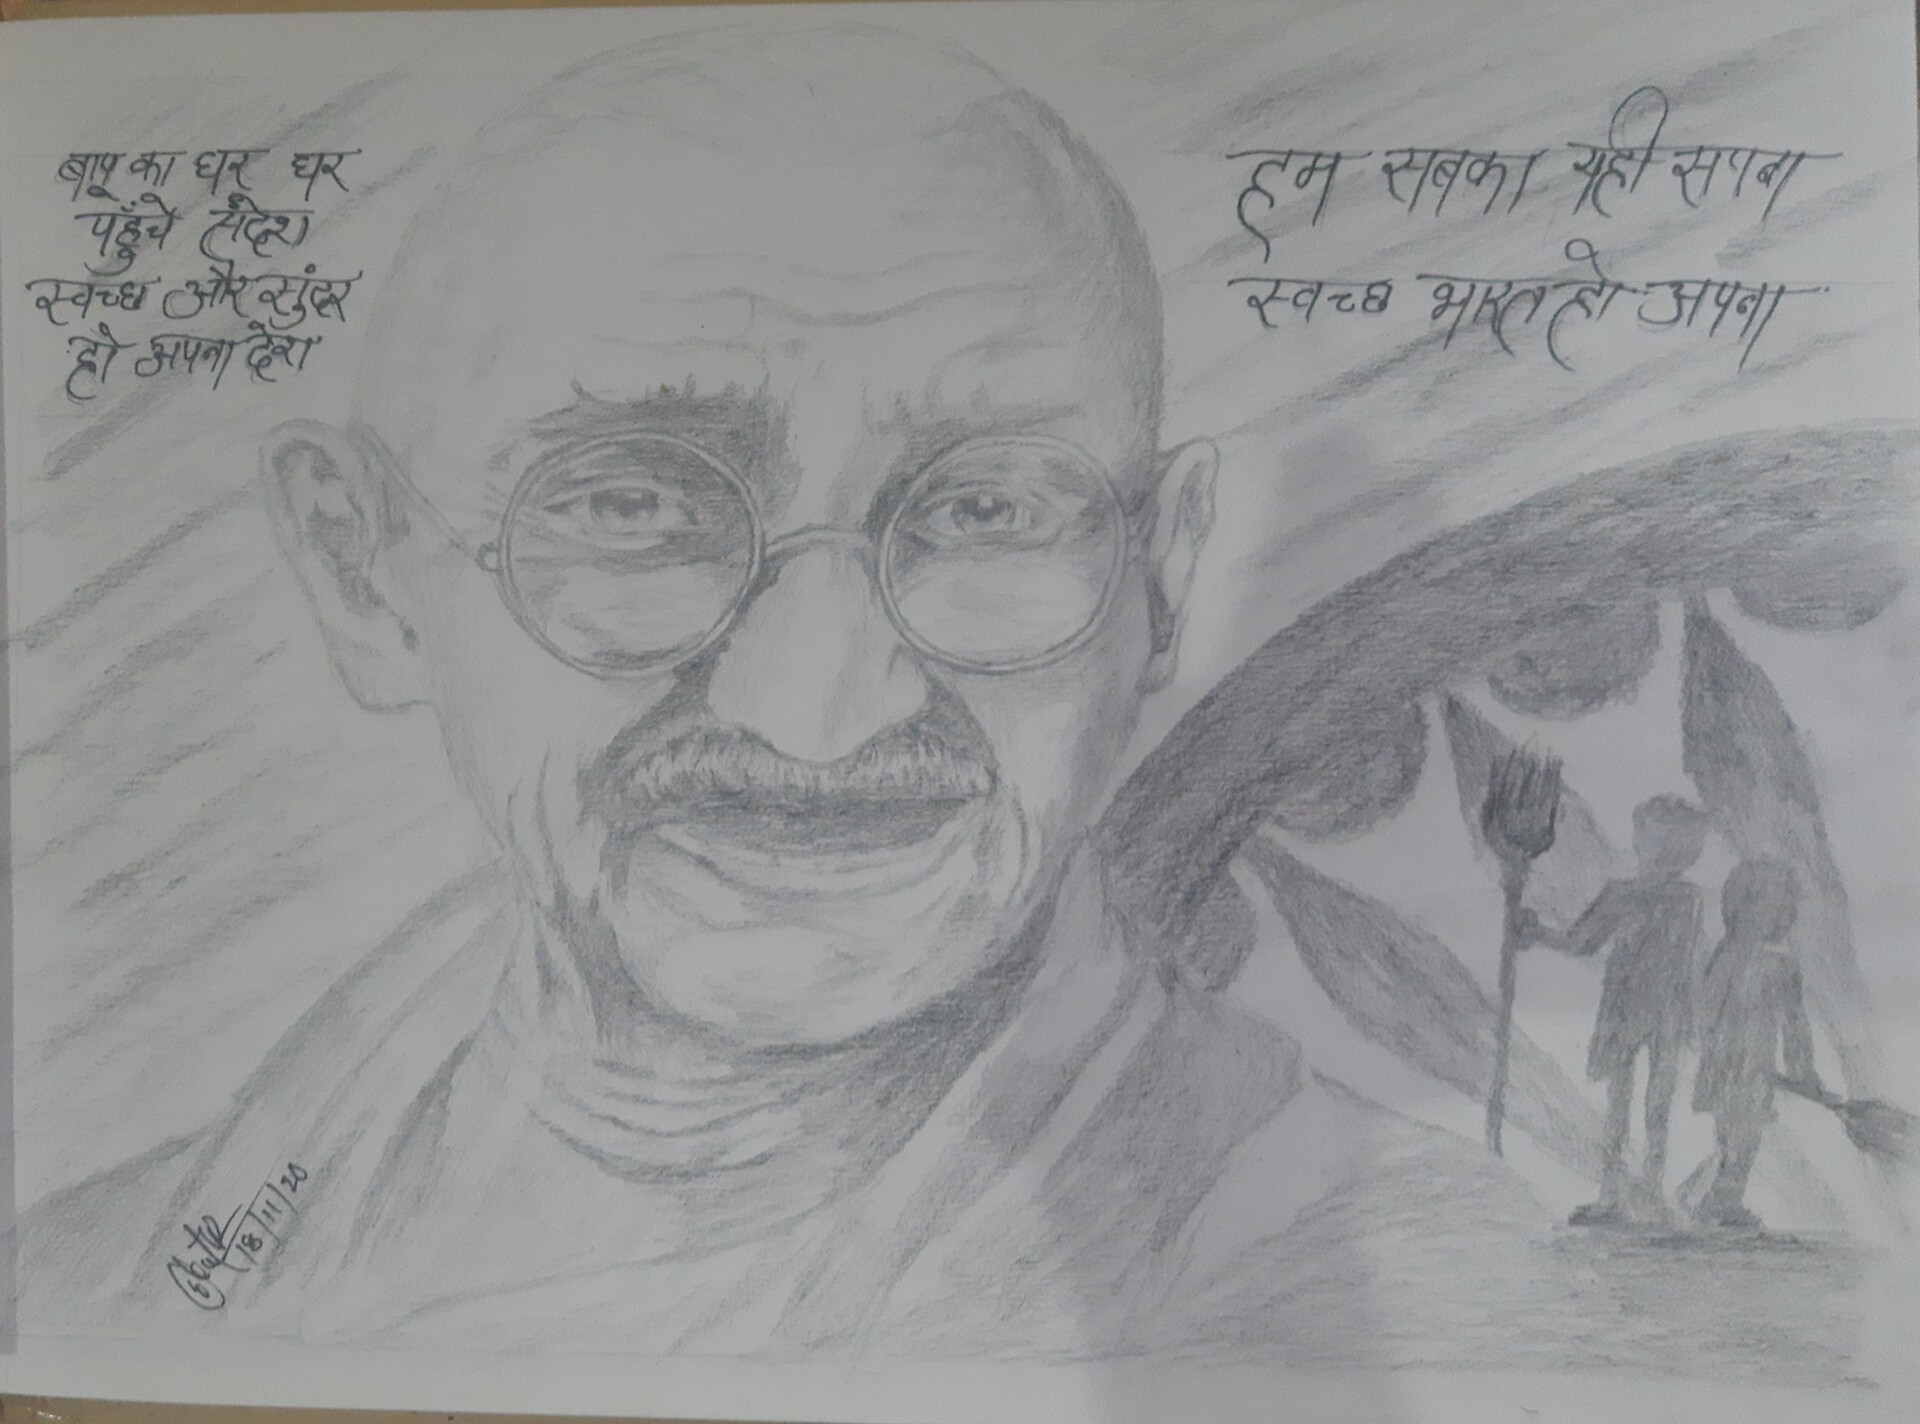 बापू का घर घर
पहुँचे संदेश
स्वच्छ और सुंदर
हो अपना देश
हम सबका यही सपना
स्वच्छ भारत हो अपना
18/11/20